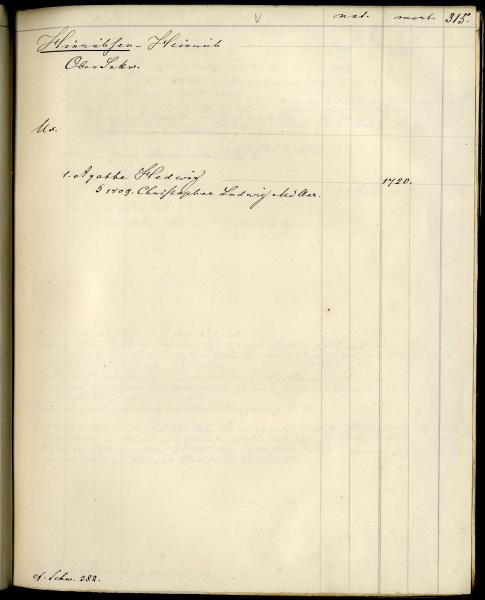 nat. mort. 315.
Hinrichsen - Heinrich
Ober Sekr.
Ux.
1. Agathe Hedwig 1720.
5 1709. Christopher Ludwig Müller.
cf. Schw. 282.